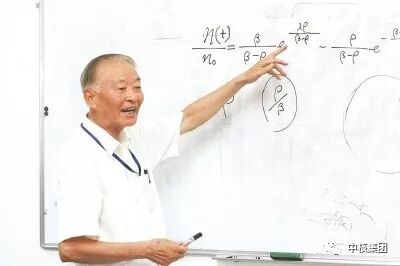 n(t)/n₀ = β/(β-ρ) e^(λρ/(β-ρ)) - ρ/(β-ρ) e^(-β
ρ
ρ/β
中核集团